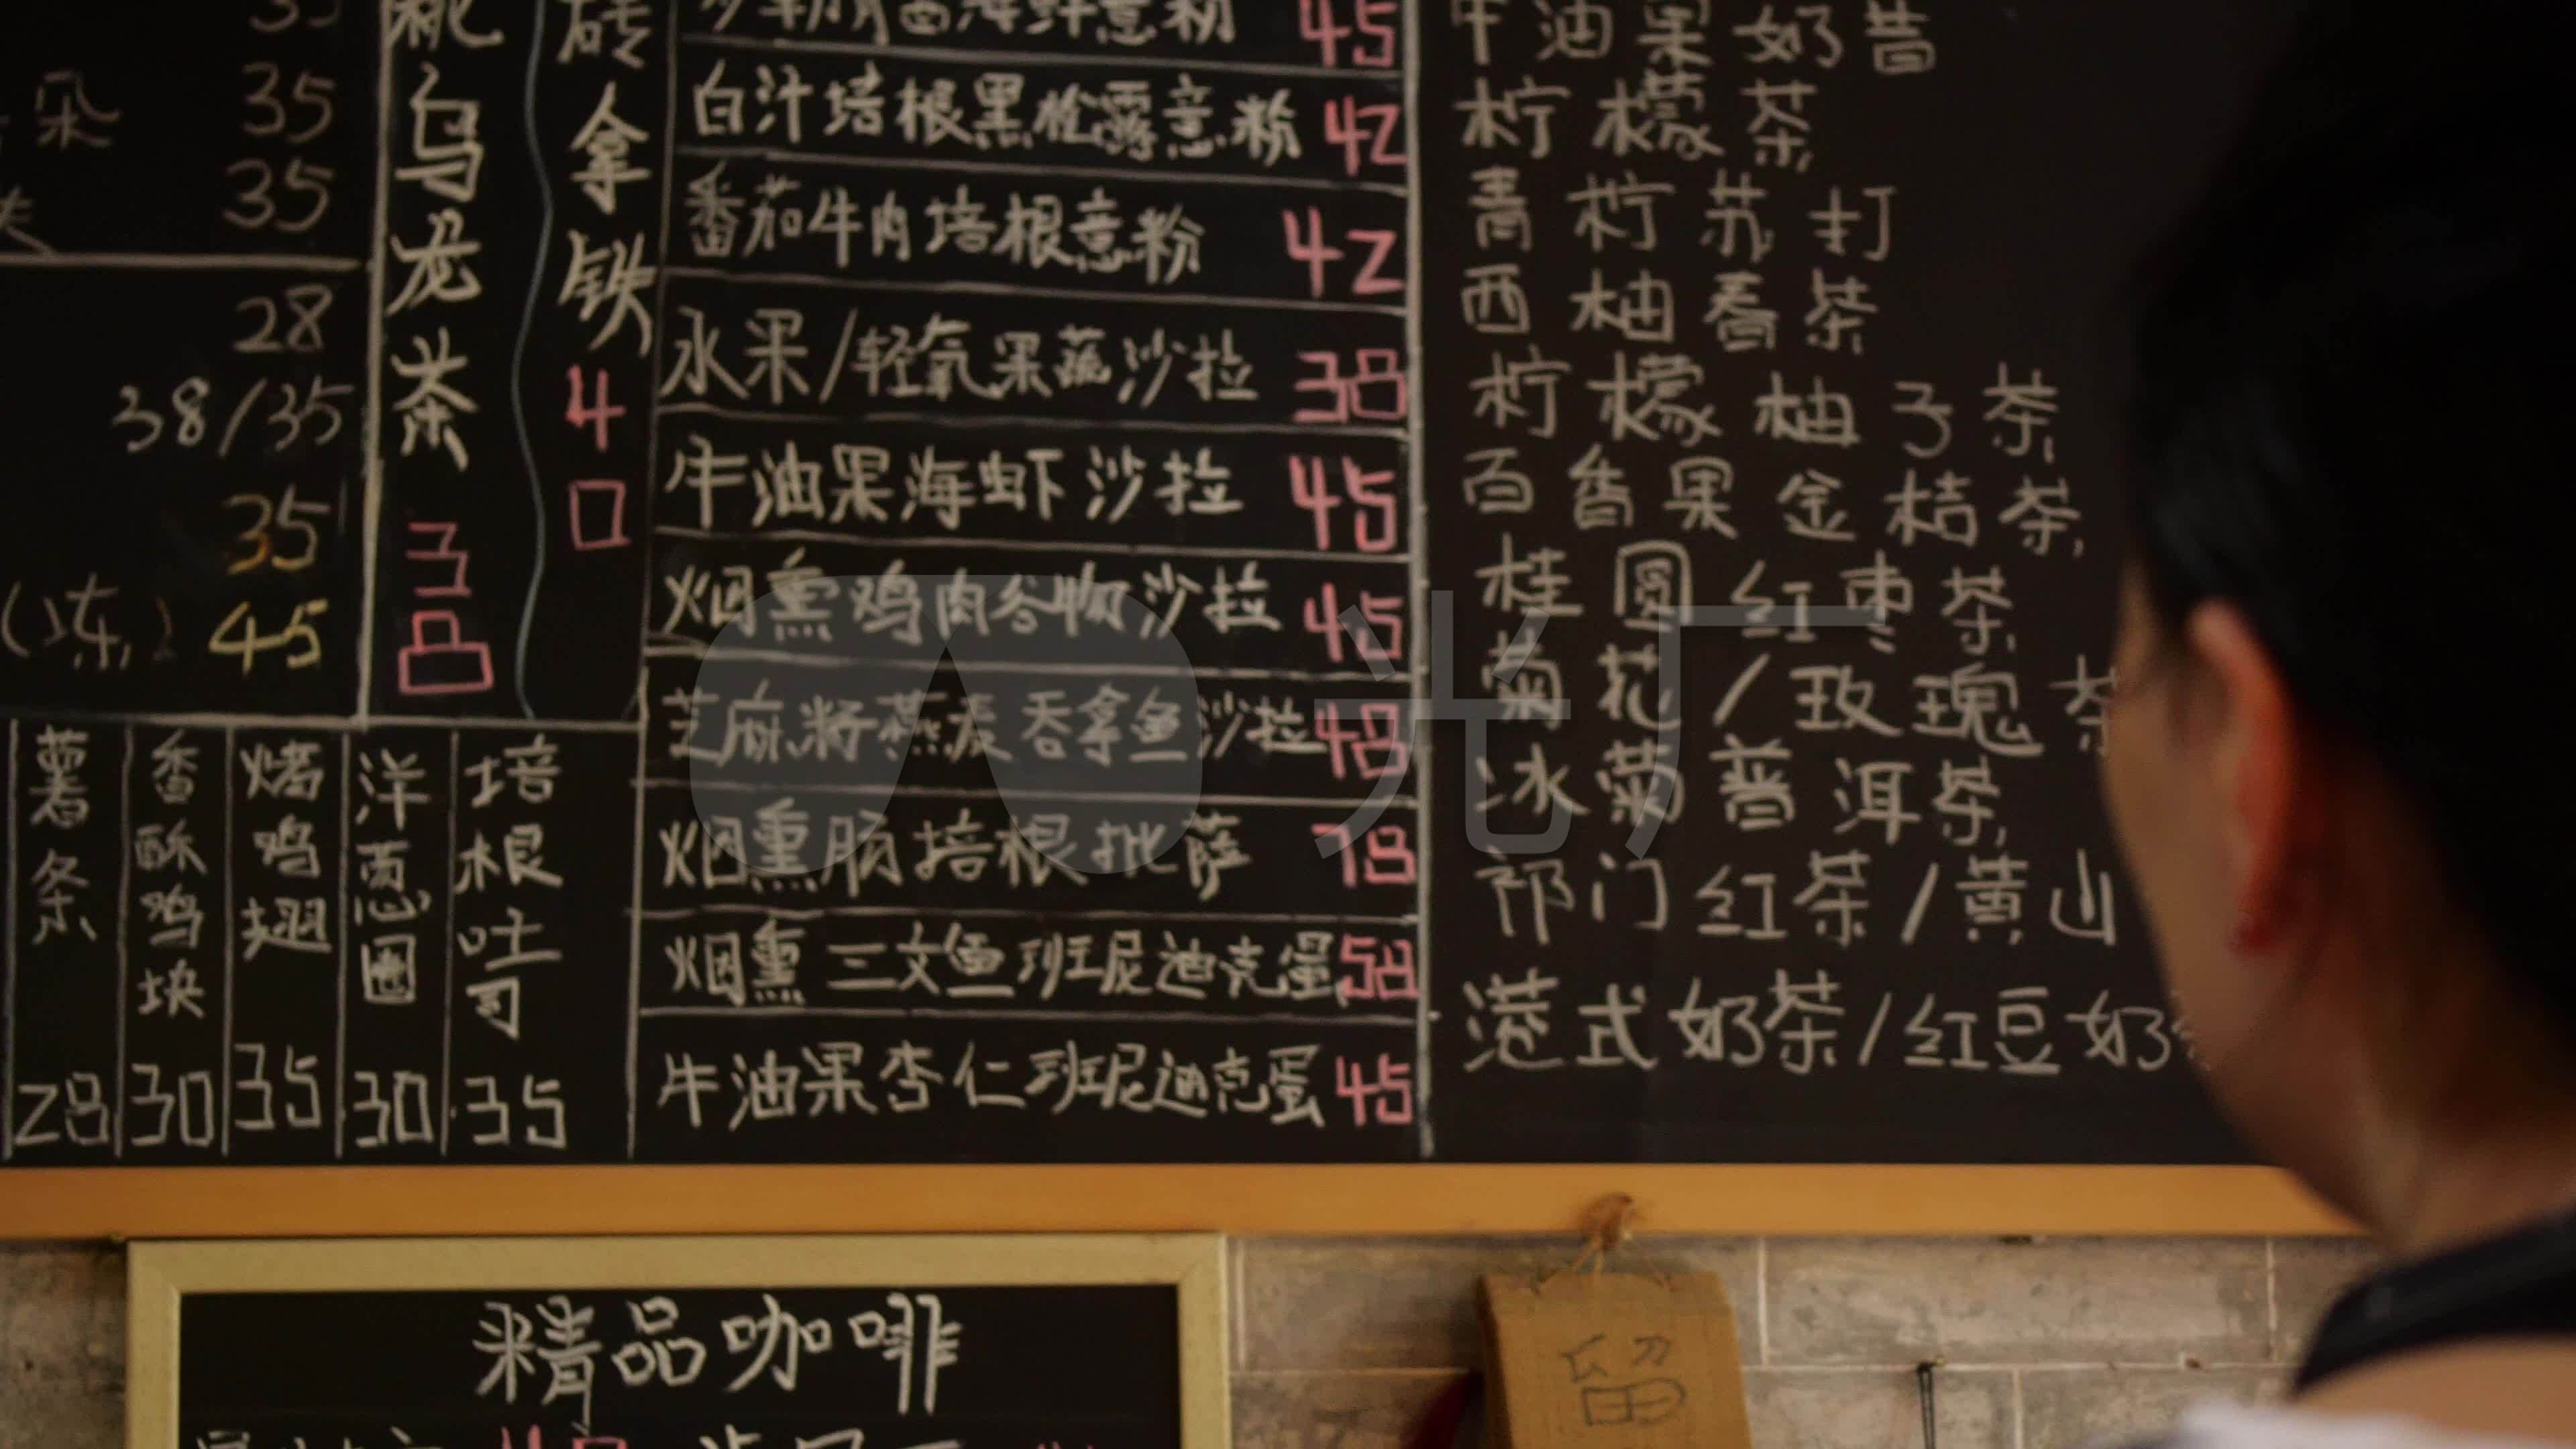 35
朵 35
35
28
38/35
35
(冻) 45
桃乌龙茶
38
砖拿铁
40
海鲜意粉 45
白汁培根黑松露意粉 42
番茄牛肉培根意粉 42
水果/轻氧果蔬沙拉 38
牛油果海虾沙拉 45
烟熏鸡肉谷物沙拉 45
芝麻籽燕麦吞拿鱼沙拉 48
烟熏肠培根批萨 78
烟熏三文鱼班尼迪克蛋 58
牛油果杏仁班尼迪克蛋 45
薯条 28
香酥鸡块 30
烤鸡翅 35
洋葱圈 30
培根吐司 35
牛油果奶昔
柠檬茶
青柠苏打
西柚春茶
柠檬柚子茶
百香果金桔茶
桂圆红枣茶
菊花/玫瑰茶
冰菊普洱茶
祁门红茶/黄山
港式奶茶/红豆奶
光厂
精品咖啡
留